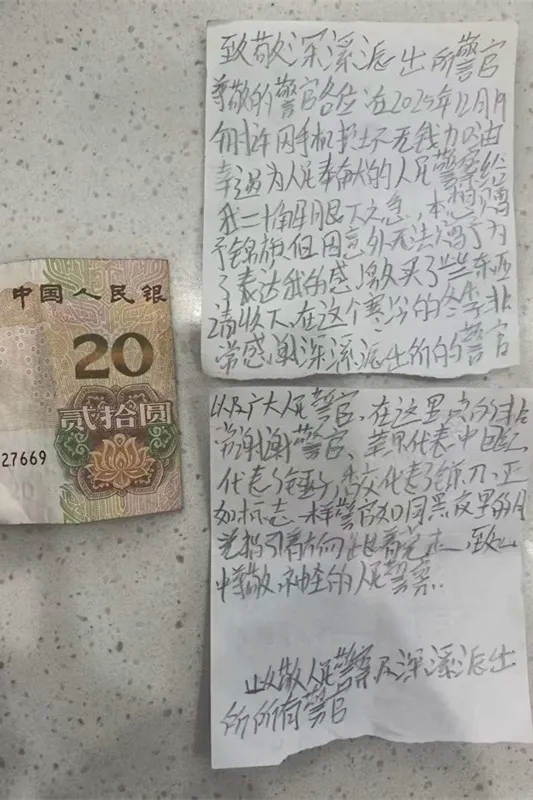 中国人民银
20
贰拾圆
27669
20
致敬深溪派出所警官
尊敬的警官各位在2025年12月
因手机 无钱
幸遇为人民奉献的人民警察给
我二十解燃眉之急,本想赠
予锦旗但因意外无法赠予为
了表达我的感激买了些东西
请收下,在这个寒冷的冬季非
常感谢深溪派出所的警官
以及广大人民警官,在这里真的非
常谢谢警官、苹果代表中国红
代表了锤子,香交代表了镰刀,正
如标志一样警官如同黑夜里的月
光指引着方向 致以
崇敬、神圣的人民警察.
致敬人民警察及深溪派出
所所有警官